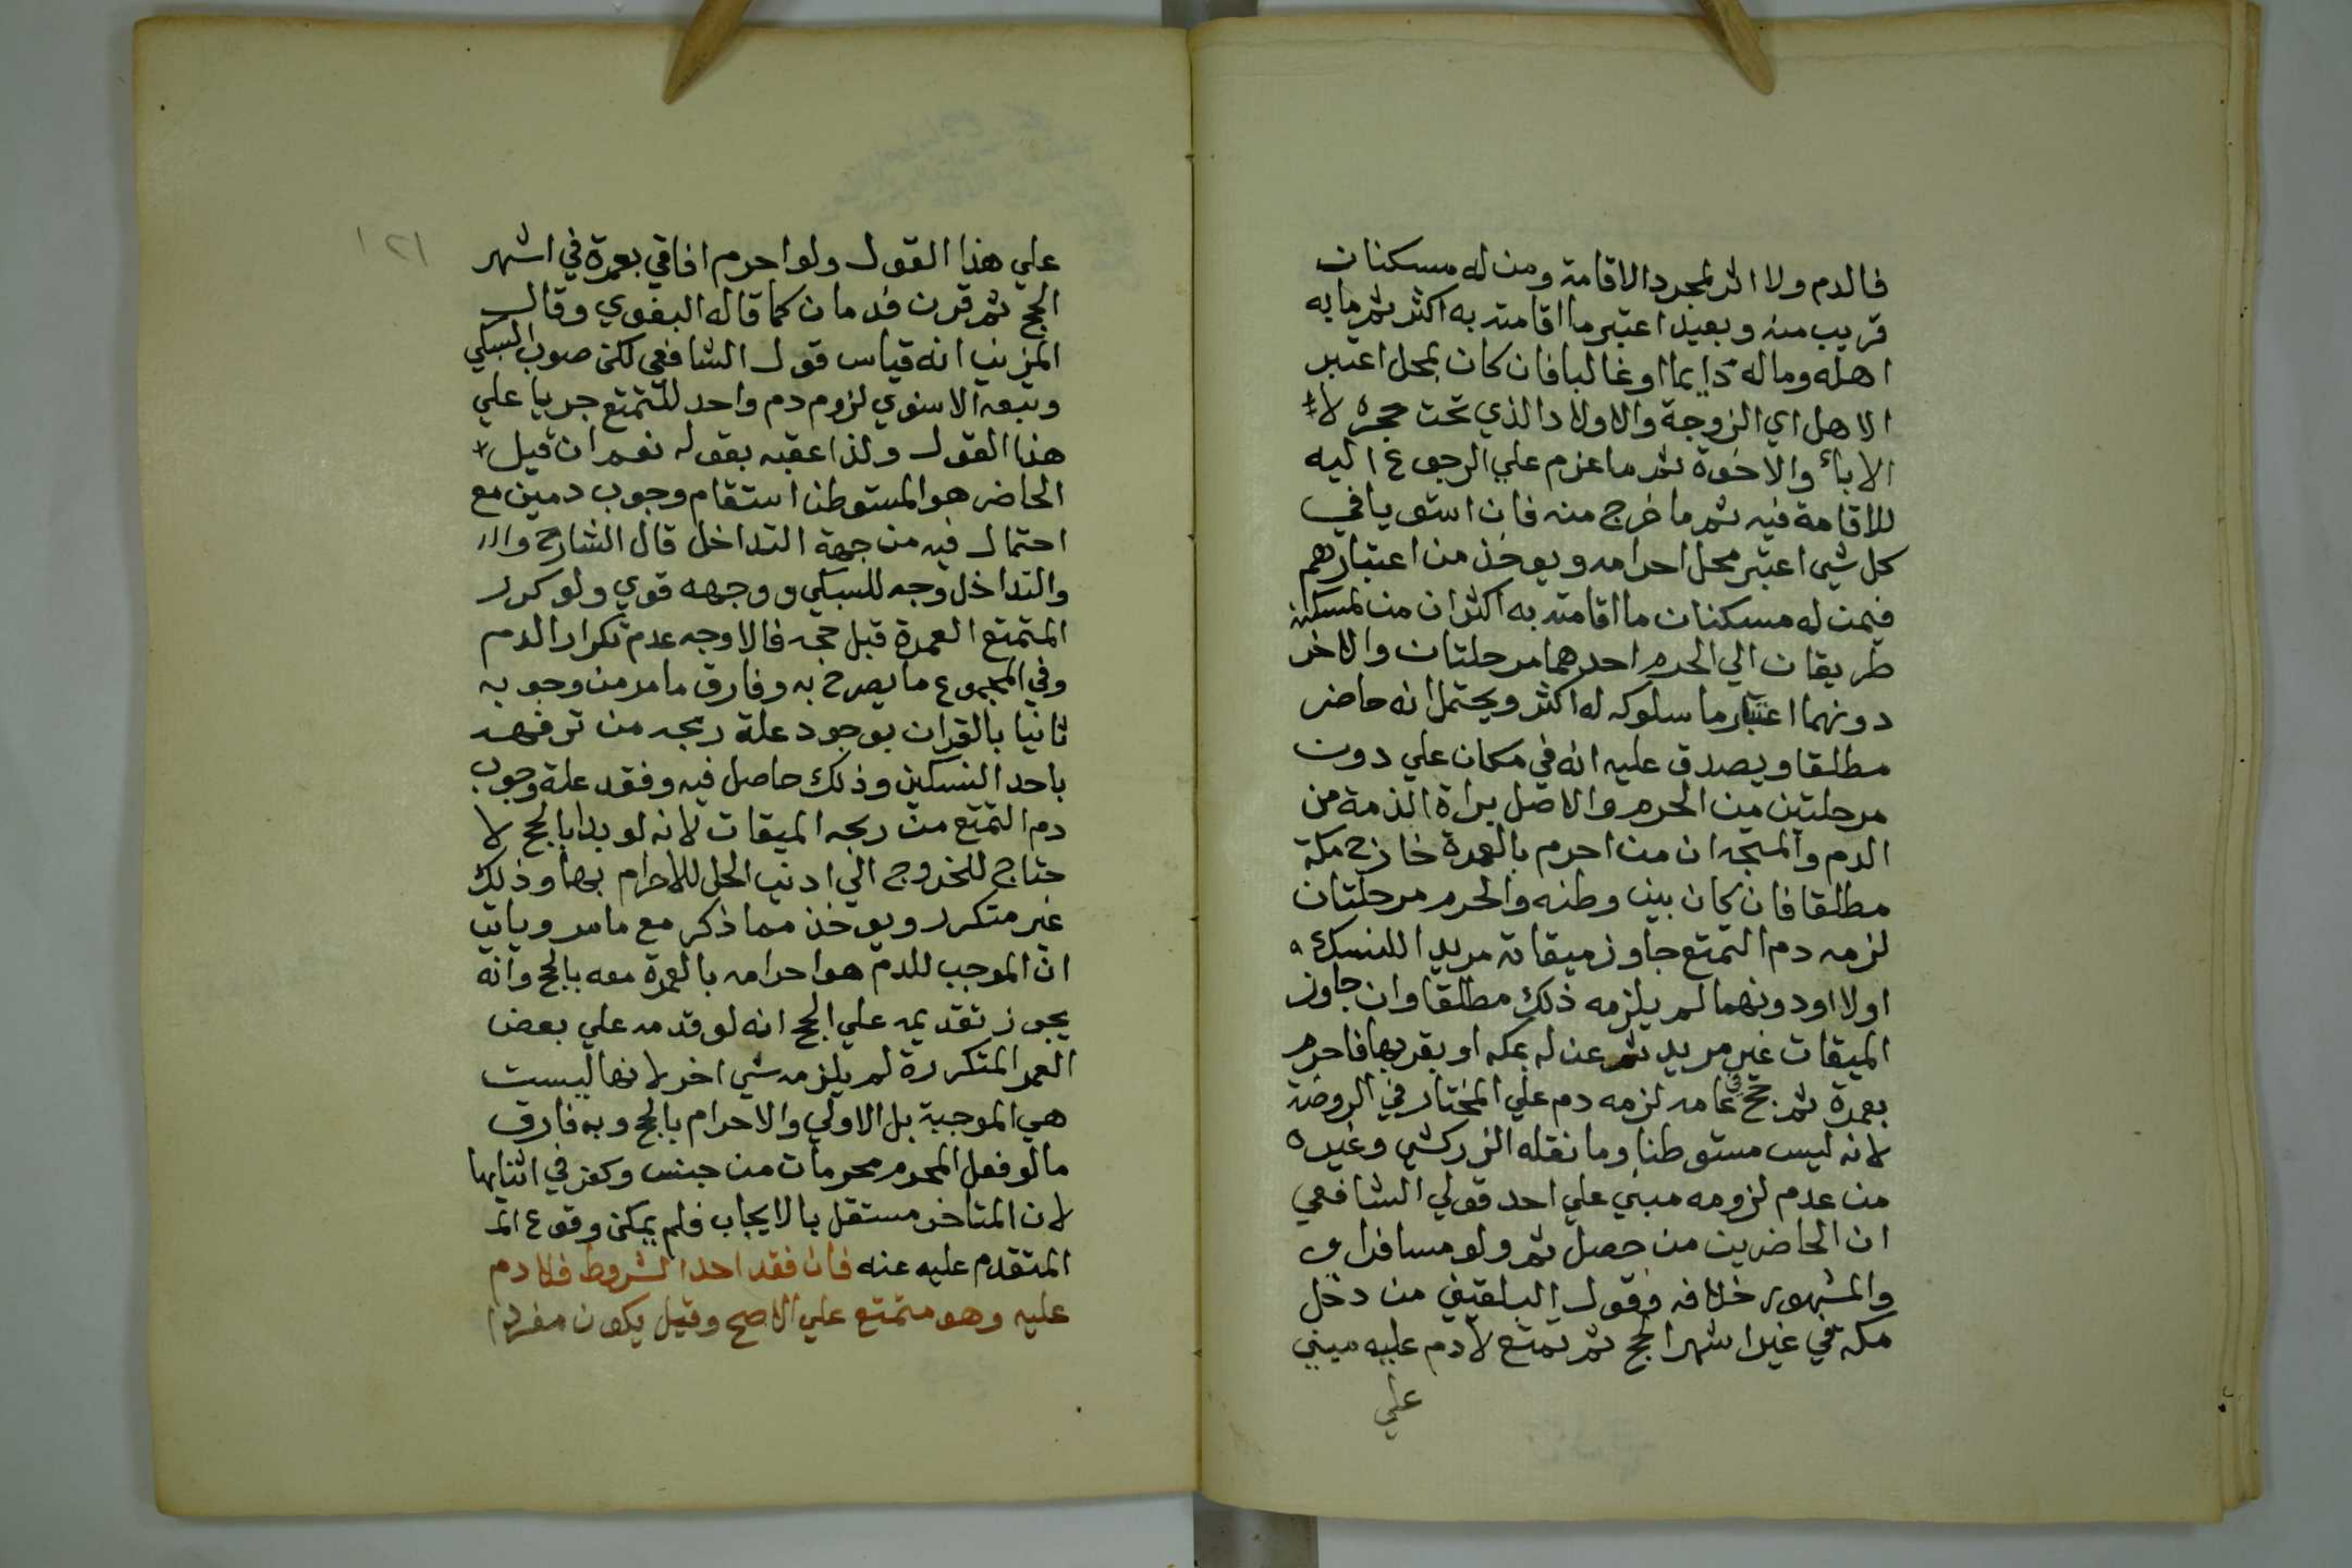 فالدم ولا اثر لمجرد الاقامة ومن له مسكنان
قريب منه وبعيد اعتبر ما اقامته به اكثر ثم ما به
اهله وماله دايما او غالبا فان كان بمحل اعتبر
الاهل اي الزوجة والاولاد الذي تحت حجره لا
الاباء والاخوة ثم ما عزم علي الرجوع اليه
للاقامة فيه ثم ما خرج منه فان استويا في
كل شي اعتبر محل احرامه ويوخذ من اعتبارهم
فيمن له مسكنان ما اقامته به اكثر ان من لمسكنه
طريقان الي الحرم احدهما مرحلتان والاخر
دونهما اعتبار ما سلوكه له اكثر ويحتمل انه حاضر
مطلقا ويصدق عليه انه في مكان علي دون
مرحلتين من الحرم والاصل براة الذمة من
الدم والمتجه ان من احرم بالعمرة خارج مكة
مطلقا فان كان بين وطنه والحرم مرحلتان
لزمه دم التمتع جاوز ميقاته مريدا للنسك
اولا او دونهما لم يلزمه ذلك مطلقا وان جاوز
الميقات غير مريد ثم عن له بمكه او بقربها فاحرم
بعمرة ثم حج عامه لزمه دم علي المختار في الروضة
لانه ليس مستوطنا وما نقله الزركشي وغيره
من عدم لزومه مبني علي احد قولي الشافعي
ان الحاضرين من حصل ثم ولو مسافرا
والمشهور خلافه وقول البلقيني من دخل
مكه في غير اشهر الحج ثم تمتع لا دم عليه مبني
علي
١٢١
علي هذا القول ولو احرم افاقي بعمرة في اشهر
الحج ثم قرن فدمان كما قاله البغوي وقال
المزني انه قياس قول الشافعي لكن صوب السبكي
وتبعه الاسنوي لزوم دم واحد للتمتع جريا علي
هذا القول ولذا عقبه بقوله نعم ان قيل
الحاضر هو المستوطن استقام وجوب دمين مع
احتمال فيه من جهة التداخل قال الشارح والر
والتداخل وجه للسبكي ووجهه قوي ولو كرر
المتمتع العمرة قبل حجه فالاوجه عدم تكرار الدم
وفي المجموع ما يصرح به وفارق ما مر من وجوبه
ثانيا بالقران بوجود علة ربحه من ترفهه
باحد النسكين وذلك حاصل فيه وفقد علة وجوب
دم التمتع من ربحه الميقات لانه لو بدا بالحج لا
حتاج للخروج الي ادني الحل للاحرام بها وذلك
غير متكرر ويوخذ مما ذكر مع ما مر وياتي
ان الموجب للدم هو احرامه بالعمرة معه بالحج وانه
يجوز تقديمه علي الحج انه لو قدمه علي بعض
العمر المتكررة لم يلزمه شي اخر لانها ليست
هي الموجبة بل الاولي والاحرام بالحج وبه فارق
ما لو فعل المحرم محرمات من جنس وكفر في اثنايها
لان المتاخر مستقل بالايجاب فلم يمكن وقوع الم
المتقدم عليه عنه فان فقد احد الشروط فلا دم
عليه وهو متمتع علي الاصح وقيل يكون مفردا